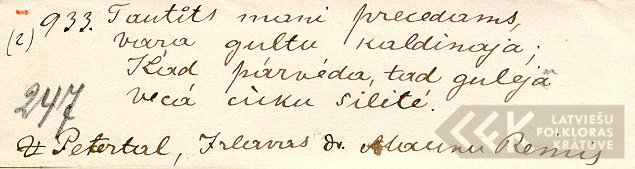 933. Tautits mani precedams,
(2) vara gultu kaldinaja;
Kad pārvēda, tad gulēja
247 vecā cūku silītē.
Petertal, Irlavas dr.
LATVIEŠU
FOLKLORAS
KRĀTUVE